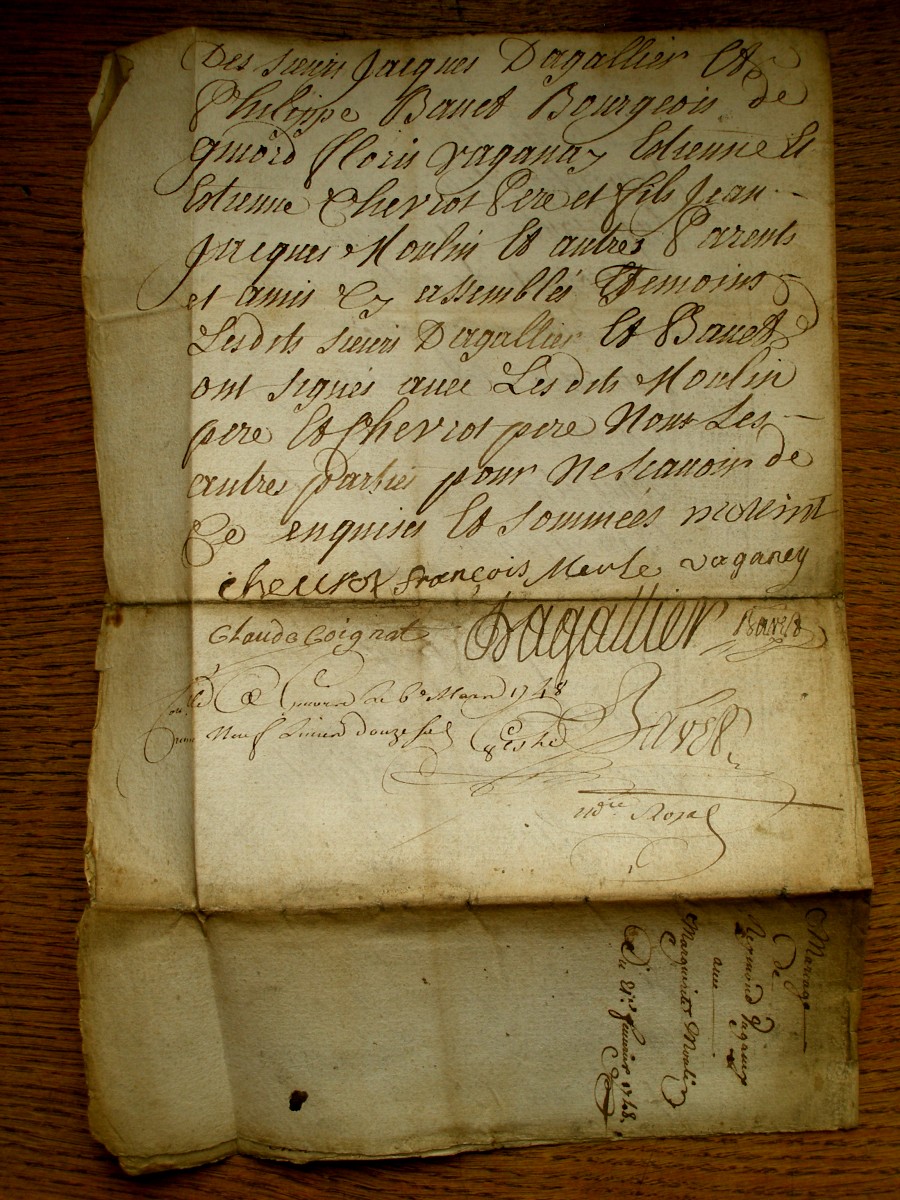 Des sieurs Jacques Dagallier Et
Philippe Bavet Bourgeois de
floris vaganay Estienne Et
Estienne Chevrot Pere et fils Jean-
Jacques Moulin Et autres Parents
et amis assemblés Temoins
Lesdits sieurs Dagallier Et Bavet
ont signés avec Lesdits Moulin
pere Et Chevrot pere Non Les-
autres parties pour ne scavoir de
Ce enquises Et sommées
chevrot françois Merle vaganey
Claude Coignat Dagallier Bavet
Le 6e Mars 1748
Neuf Livres douze sols Bavet
nore Royal
Mariage
De
Reymond Vaganey
avec
Marguerite Moulin
Du 21e fevrier 1748